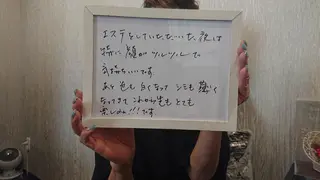 エステをしていただいた後は
特に顔がツルツルして
気持ちいいです
あと色も白くなって シミも薄く
なってきて これから先も とても
楽しみ!!!です